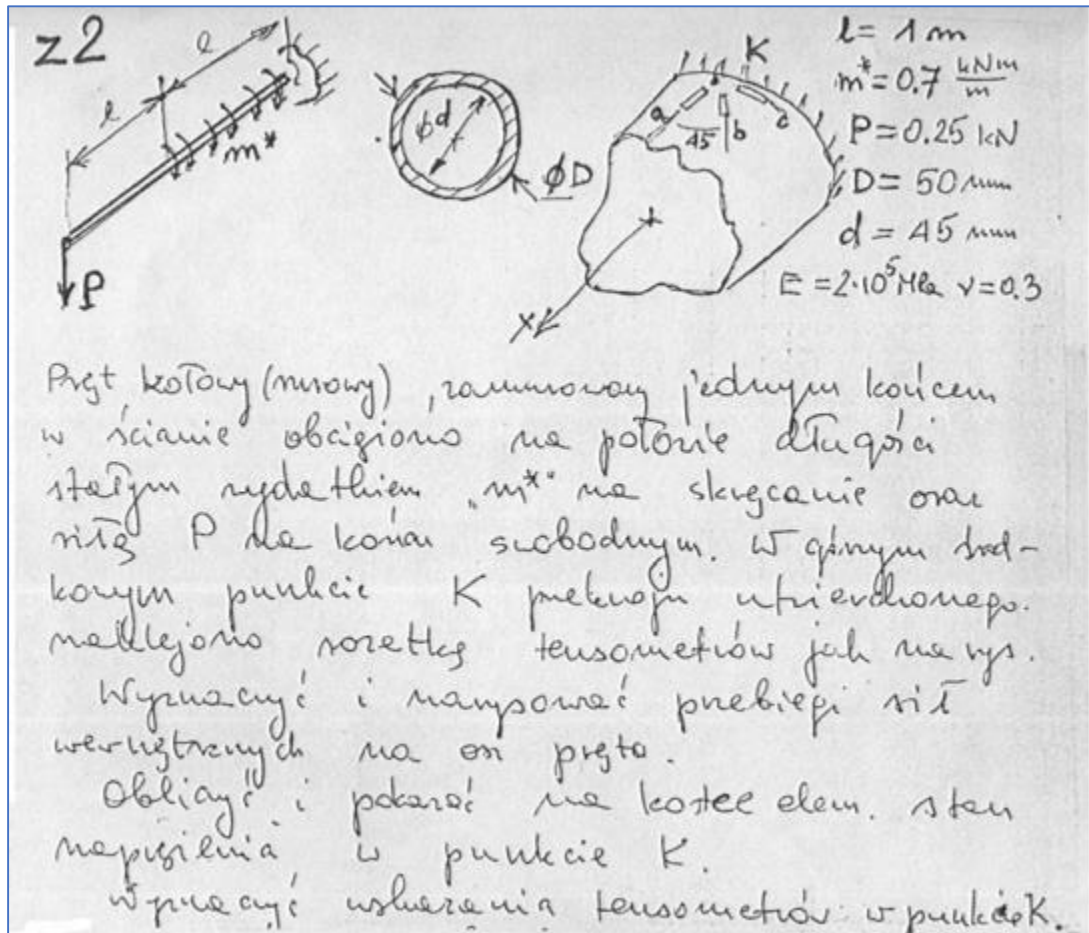 z2
l
l
m*
P
ϕd
ϕD
K
a
b
c
45
x
l = 1 m
m* = 0.7 kNm/m
P = 0.25 kN
D = 50 mm
d = 45 mm
E = 2·10⁵ MPa ν = 0.3
Pręt kołowy (rurowy), zamurowany jednym końcem
w ścianie obciążono na połowie długości
stałym wydatkiem "m*" na skręcanie oraz
siłą P na końcu swobodnym. W górnym środ-
kowym punkcie K przekroju utwierdzonego
naklejono rozetkę tensometrów jak na rys.
Wyznaczyć i narysować przebiegi sił
wewnętrznych na osi pręta.
Obliczyć i pokazać na kostce elem. stan
naprężenia w punkcie K.
Wyznaczyć wskazania tensometrów w punkcie K.